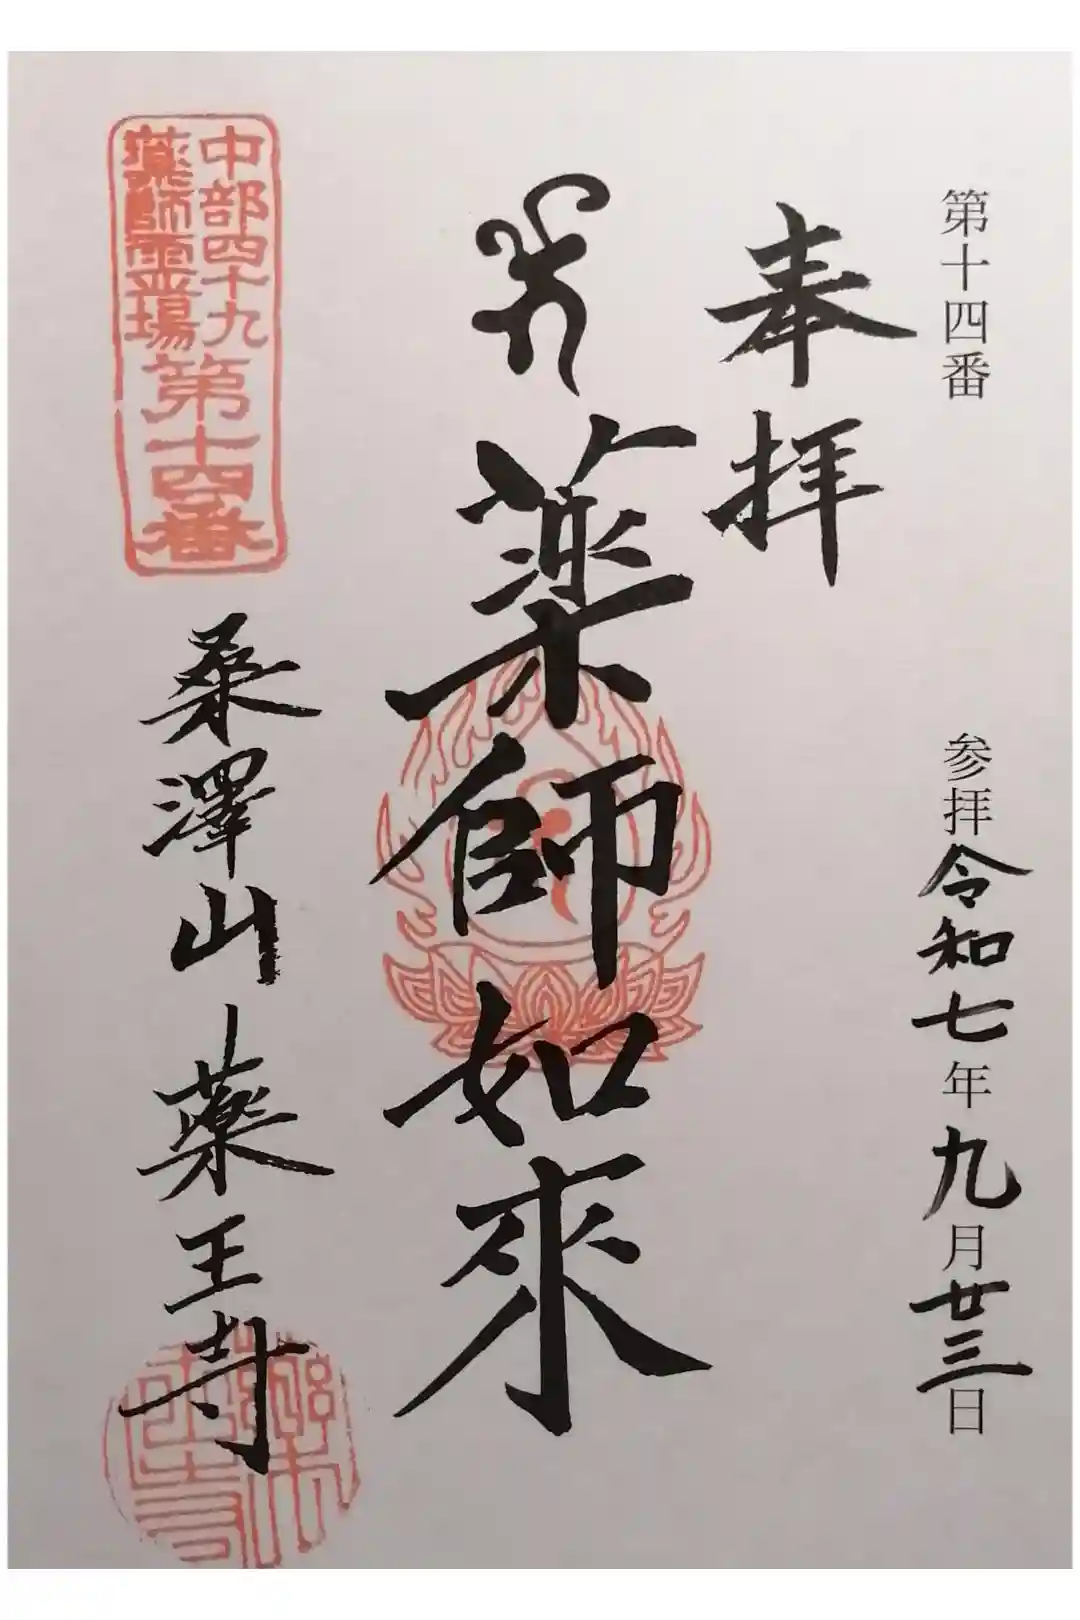 第十四番
参拝令和七年九月廿三日
奉拝
薬師如來
中部四十九
薬師霊場
第十四番
桑澤山 薬王寺